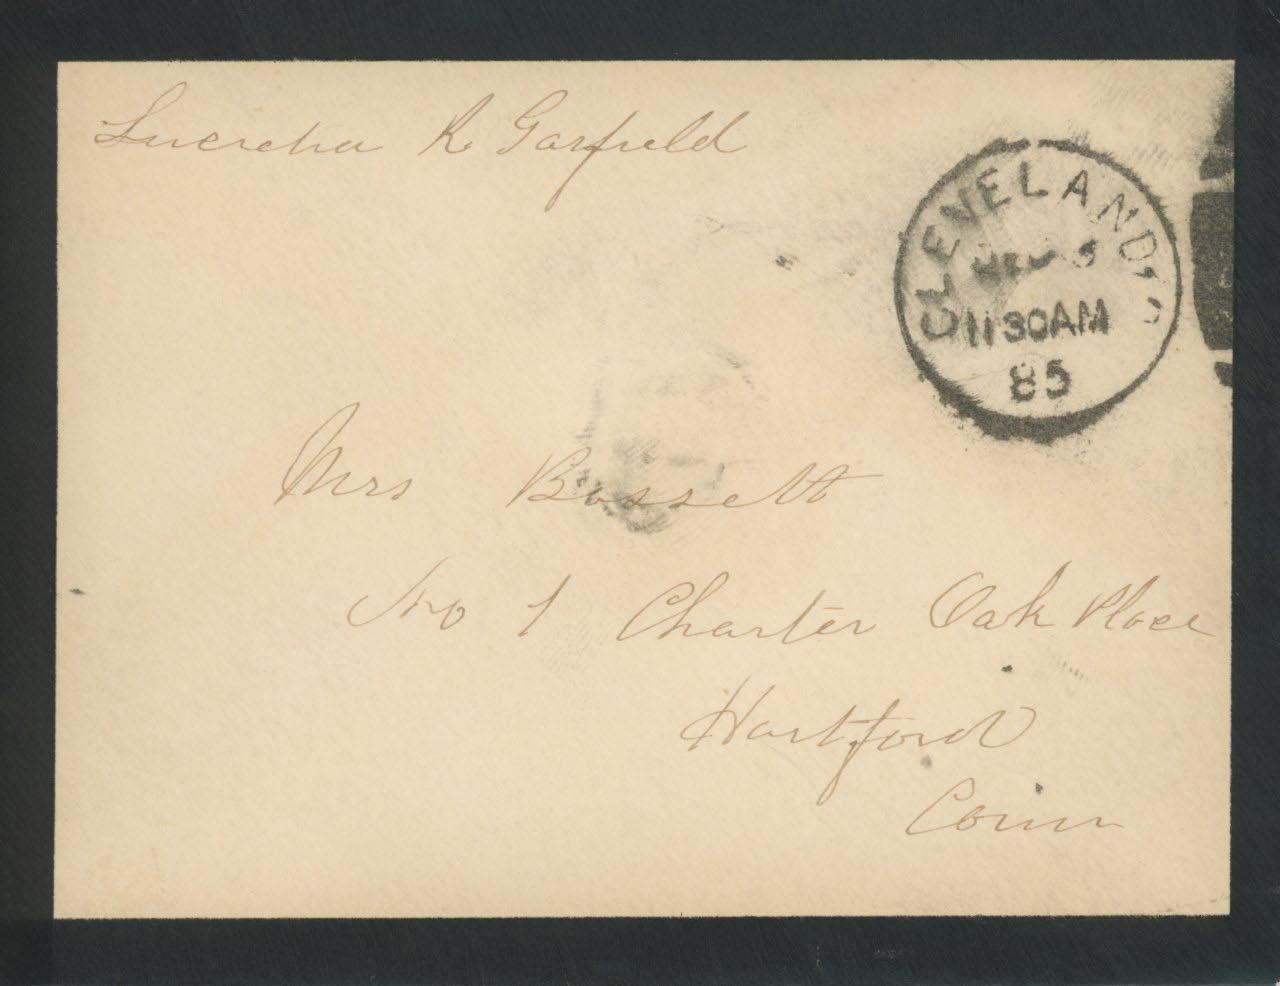 Lucretia R Garfield
CLEVELAND, O
11 30 AM
85
Mrs Bassett
No 1 Charter Oak Place
Hartford
Conn